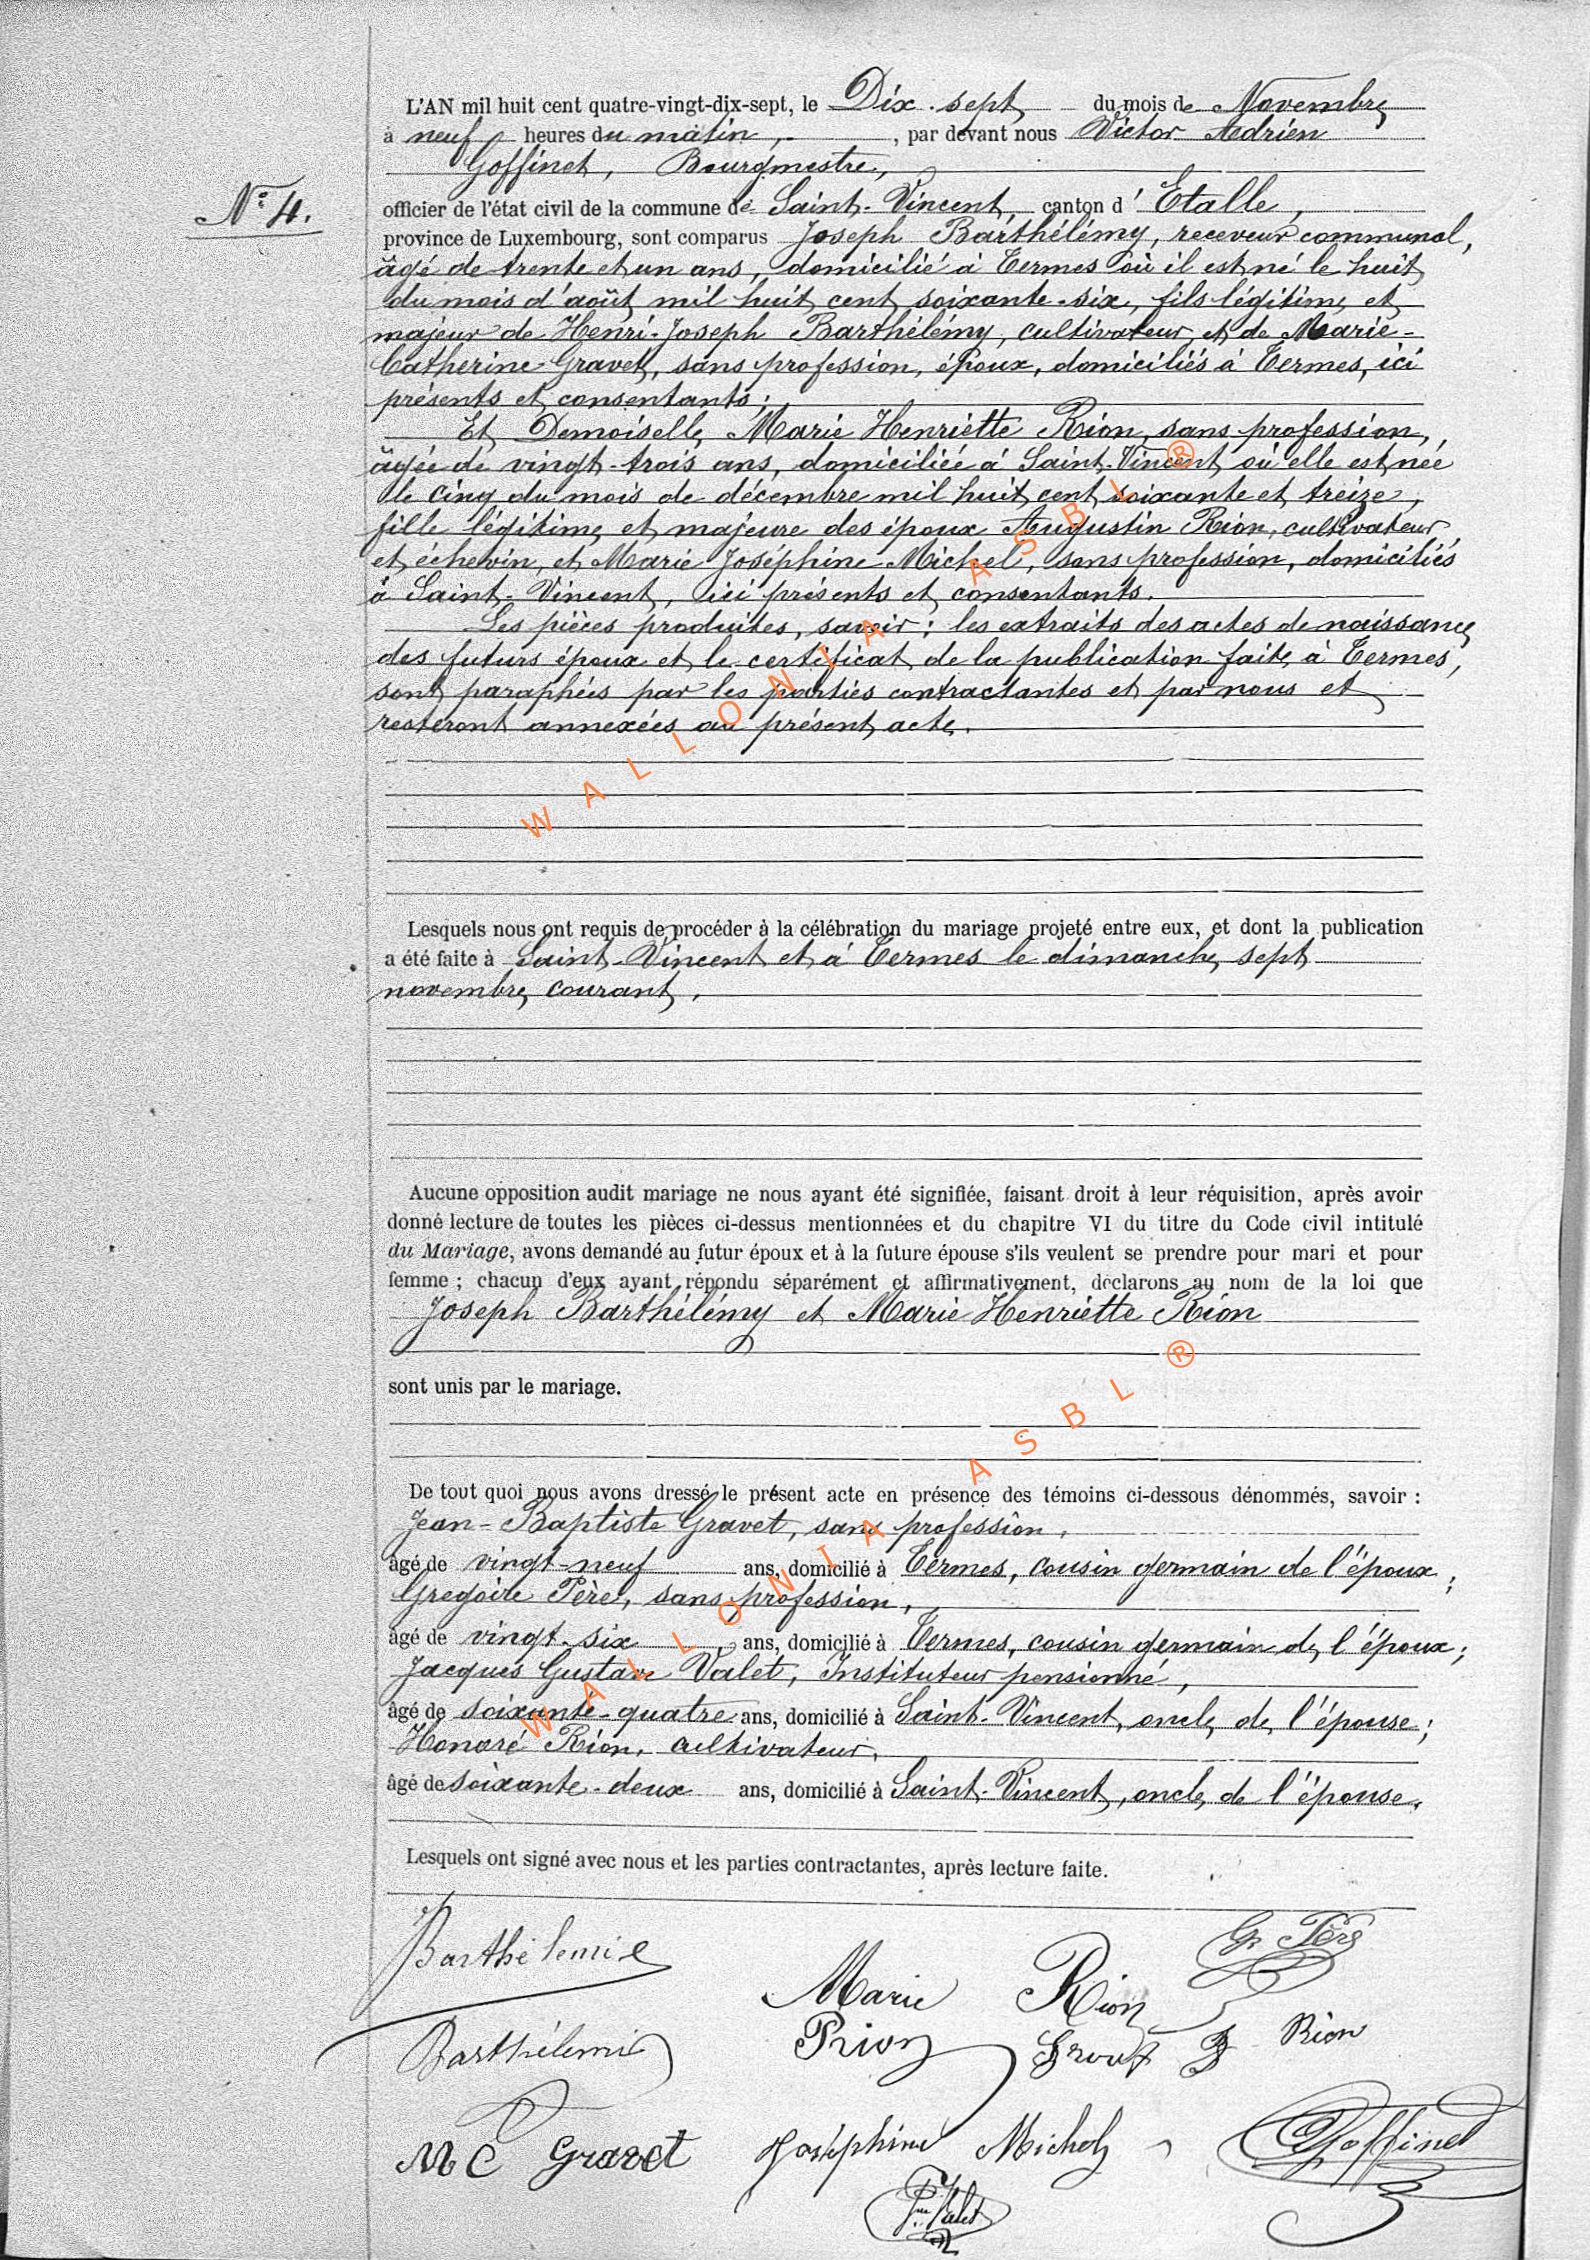 L'AN mil huit cent quatre-vingt-dix-sept, le Dix-sept du mois de Novembre
à neuf heures du matin, par devant nous Victor Adrien
Goffinet, Bourgmestre,
N° 4.
officier de l'état civil de la commune de Saint-Vincent, canton d'Etalle,
province de Luxembourg, sont comparus Joseph Barthélémy, receveur communal,
âgé de trente et un ans, domicilié à Termes où il est né le huit
du mois d'août mil huit cent soixante-six, fils légitime et
majeur de Henri-Joseph Barthélémy, cultivateur et de Marie-
Catherine Gravet, sans profession, époux, domiciliés à Termes, ici
présents et consentants;
Et Demoiselle Marie Henriette Rion, sans profession,
âgée de vingt-trois ans, domiciliée à Saint-Vincent où elle est née
le cinq du mois de décembre mil huit cent soixante et treize,
fille légitime et majeure des époux Augustin Rion, cultivateur
et échevin, et Marie Joséphine Michel, sans profession, domiciliés
à Saint-Vincent, ici présents et consentants.
Les pièces produites, savoir : les extraits des actes de naissance
des futurs époux et le certificat de la publication faite à Termes,
sont paraphées par les parties contractantes et par nous et
resteront annexées au présent acte.
WALLONIA ASBL ®
Lesquels nous ont requis de procéder à la célébration du mariage projeté entre eux, et dont la publication
a été faite à Saint-Vincent et à Termes le dimanche sept
novembre courant.
Aucune opposition audit mariage ne nous ayant été signifiée, faisant droit à leur réquisition, après avoir
donné lecture de toutes les pièces ci-dessus mentionnées et du chapitre VI du titre du Code civil intitulé
du Mariage, avons demandé au futur époux et à la future épouse s'ils veulent se prendre pour mari et pour
femme ; chacun d'eux ayant répondu séparément et affirmativement, déclarons au nom de la loi que
Joseph Barthélémy et Marie Henriette Rion
sont unis par le mariage.
WALLONIA ASBL ®
De tout quoi nous avons dressé le présent acte en présence des témoins ci-dessous dénommés, savoir :
Jean-Baptiste Gravet, sans profession,
âgé de vingt-neuf ans, domicilié à Termes, cousin germain de l'époux;
Gregoire Père, sans profession,
âgé de vingt-six ans, domicilié à Termes, cousin germain de l'époux;
Jacques Gustave Valet, Instituteur pensionné,
âgé de soixante-quatre ans, domicilié à Saint-Vincent, oncle de l'épouse;
Honoré Rion, cultivateur,
âgé de soixante-deux ans, domicilié à Saint-Vincent, oncle de l'épouse.
Lesquels ont signé avec nous et les parties contractantes, après lecture faite.
Barthélemie Marie Rion G. Père
Barthélemi Rion Rion
M C Gravet Joséphine Michel Goffinet
Valet